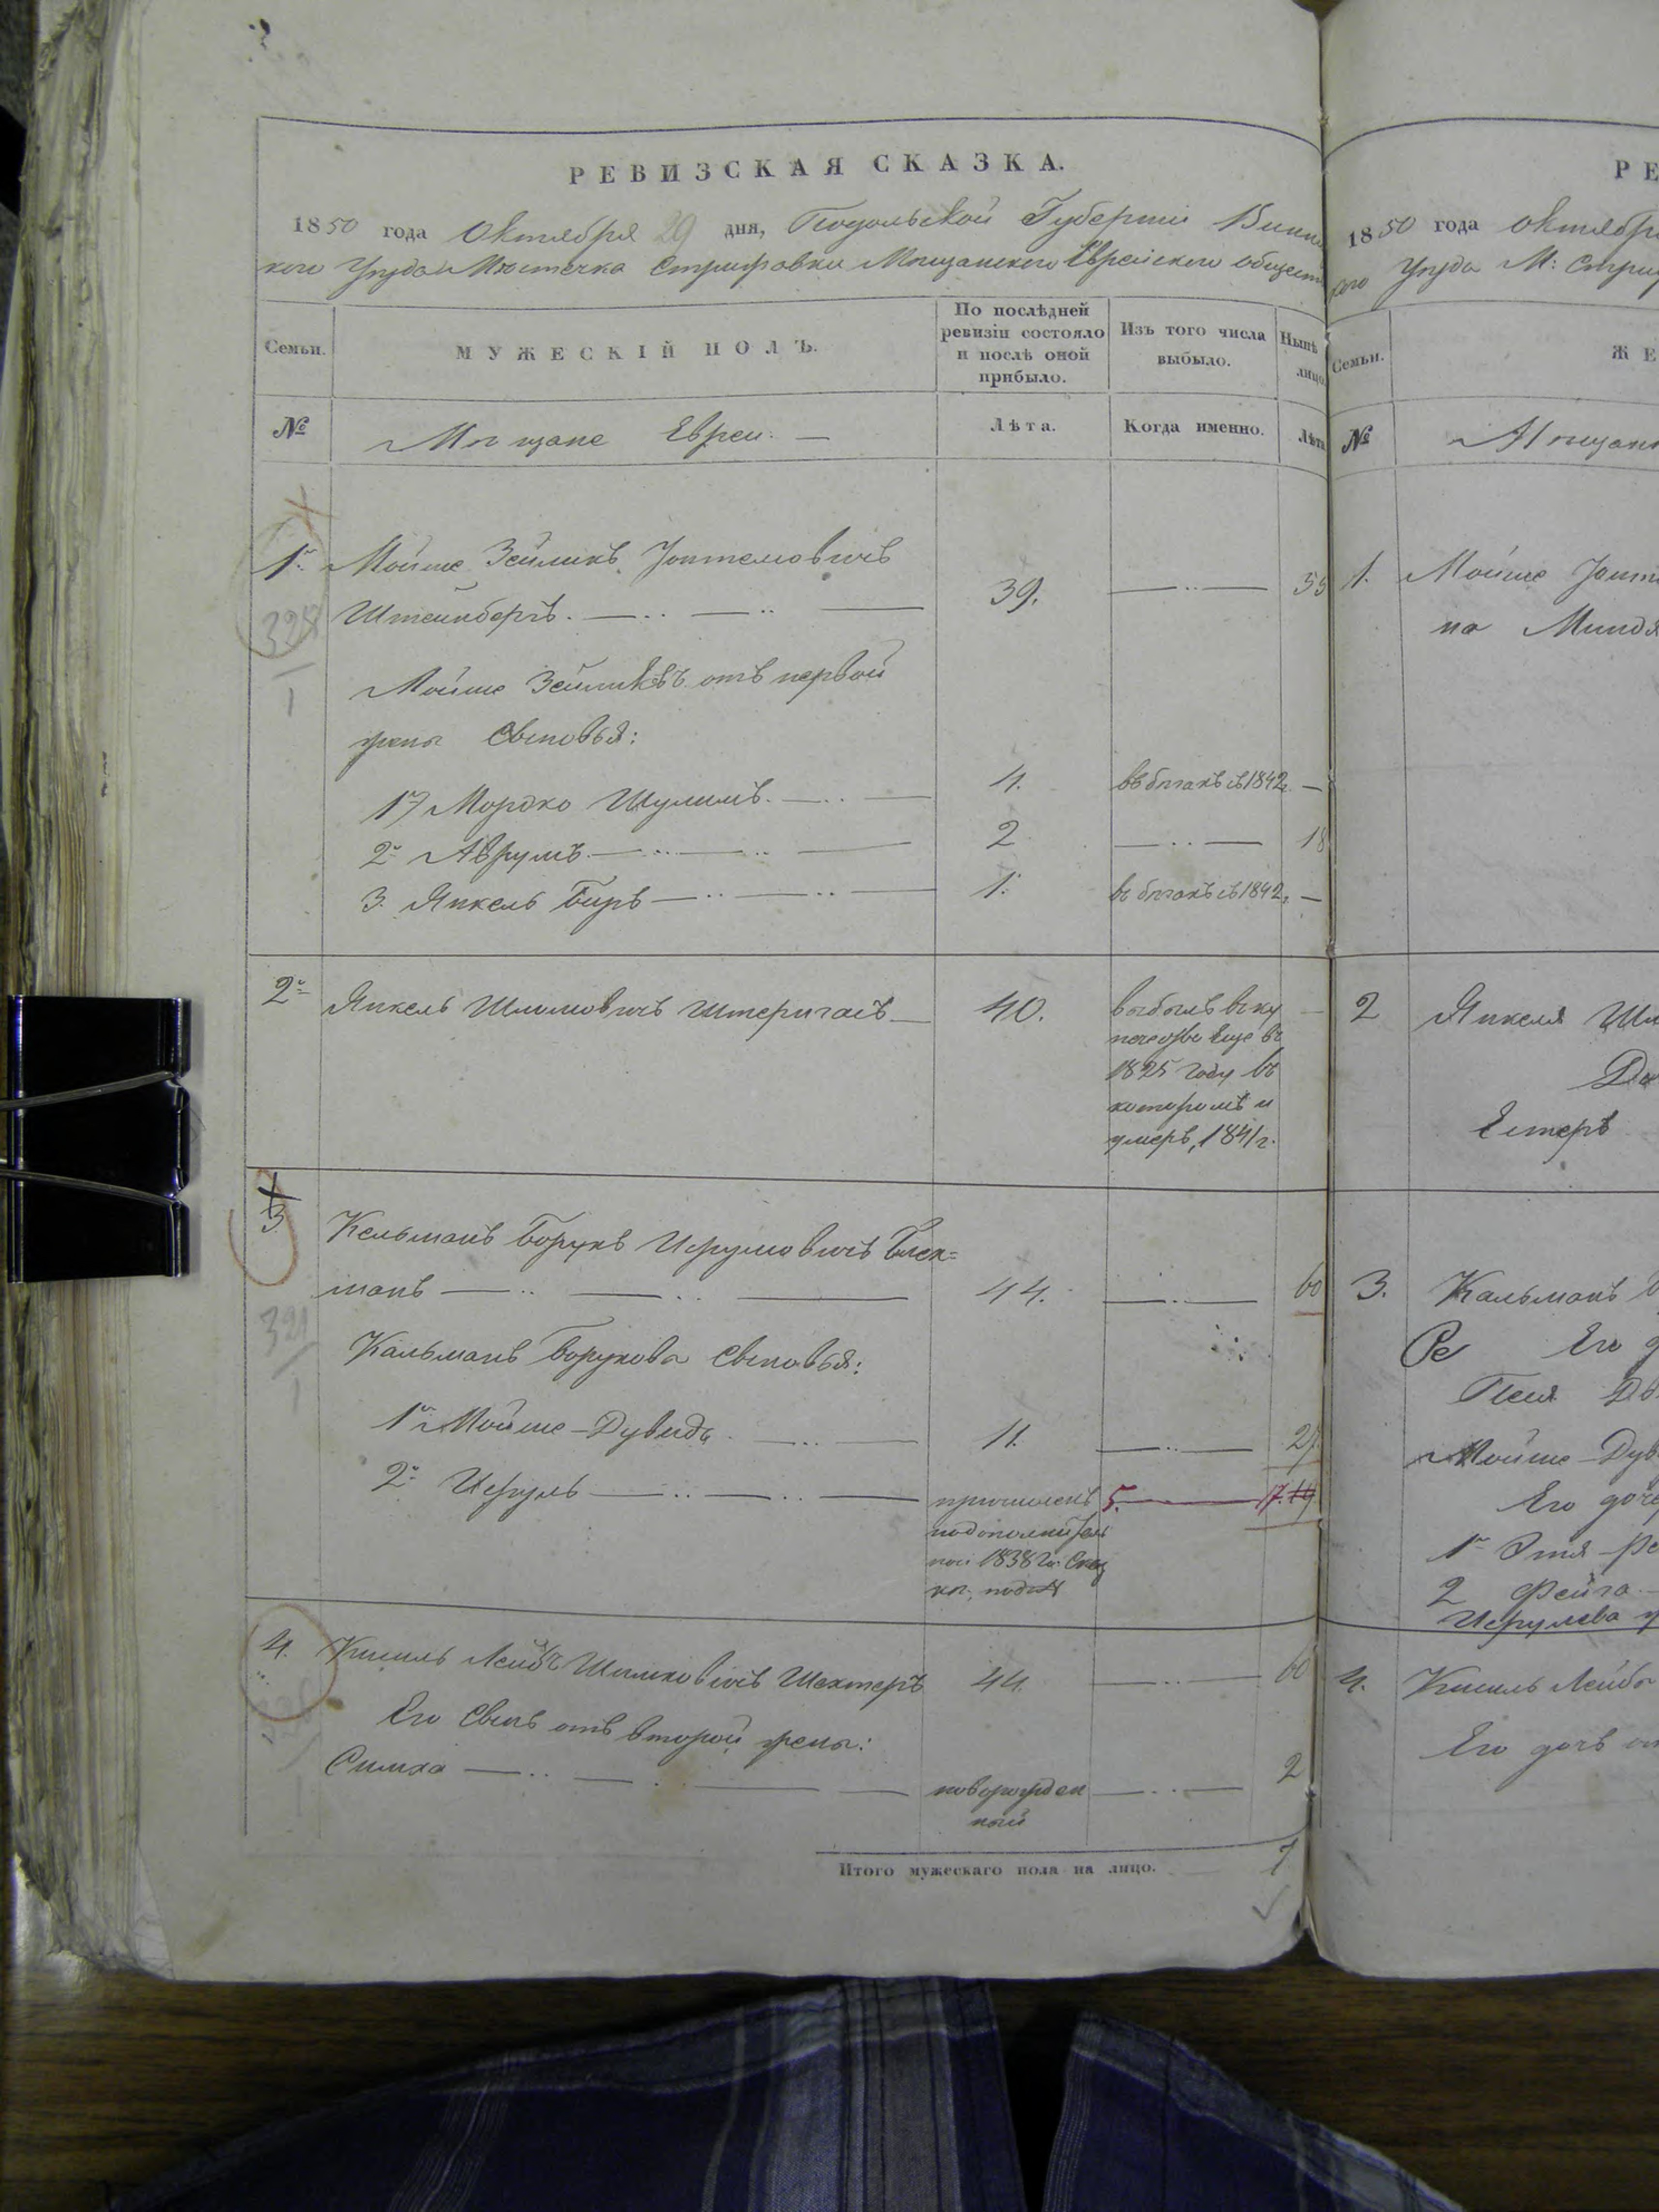 РЕВИЗСКАЯ СКАЗКА.
1850 года Октября 29 дня, Подольской Губерніи Винни
кого Уѣзда Мѣстечка Стрижовки Мѣщанского Еврейского общест
Семьи.
МУЖЕСКІЙ ПОЛЪ.
По послѣдней
ревизіи состояло
и послѣ оной
прибыло.
Изъ того числа
выбыло.
Нынѣ
лицо
№
Мѣщане Евреи. —
Лѣта.
Когда именно.
Лѣта
1. Мойше Зейликъ
Штейнбергъ. 39.
328
1
Мойше Зейликовъ отъ первой
жены сыновья:
1. Мордко Шулимъ. 4. въ бѣгахъ съ 1842 г. —
2. Аврумъ 2 18
3. Янкель Беръ 1. въ бѣгахъ съ 1842 г. —
2. Янкель Шлиомовичъ 40. выбылъ въ ку
печество еще въ
1825 году въ
которомъ и
умеръ, 1841 г.
3 Кельманъ Борухъ Исрумовичъ
манъ 44. 60
321
1
Кальманъ Борухова сыновья:
1. Мойше-Дувидъ 11. 27
2. Исруль причисленъ 5. 17. 19
по дополнитель
ной 1838 го. Сказ
кѣ, подъ
4. Кисиль Лейбъ Шимковичъ Шехтеръ 44 60
Его сынъ отъ второй жены:
Симха новорожден 2
ный
Итого мужескаго пола на лицо. 7
РЕ
1850 года октябр
кого Уѣзда М: Стриж
Семьи.
ЖЕ
№
Мѣщан
1. Мойше
на Минд
2 Янкеля Шл
До
Естеръ
3. Кальманъ Б
Его д
Песя
Мойше-Дув
Его доче
1. Этя-Ре
2 Фейга
Исрулева ж
4. Кисиль Лейба
Его дочь от